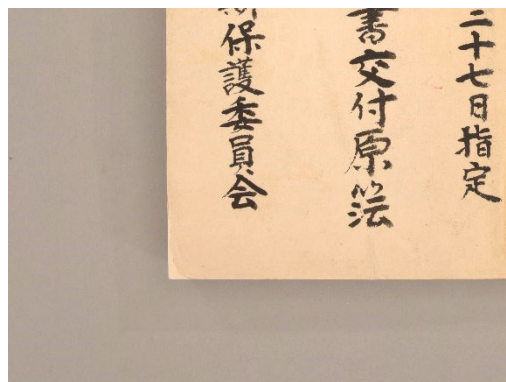 二十七日指定
書交付原簿
保護委員会